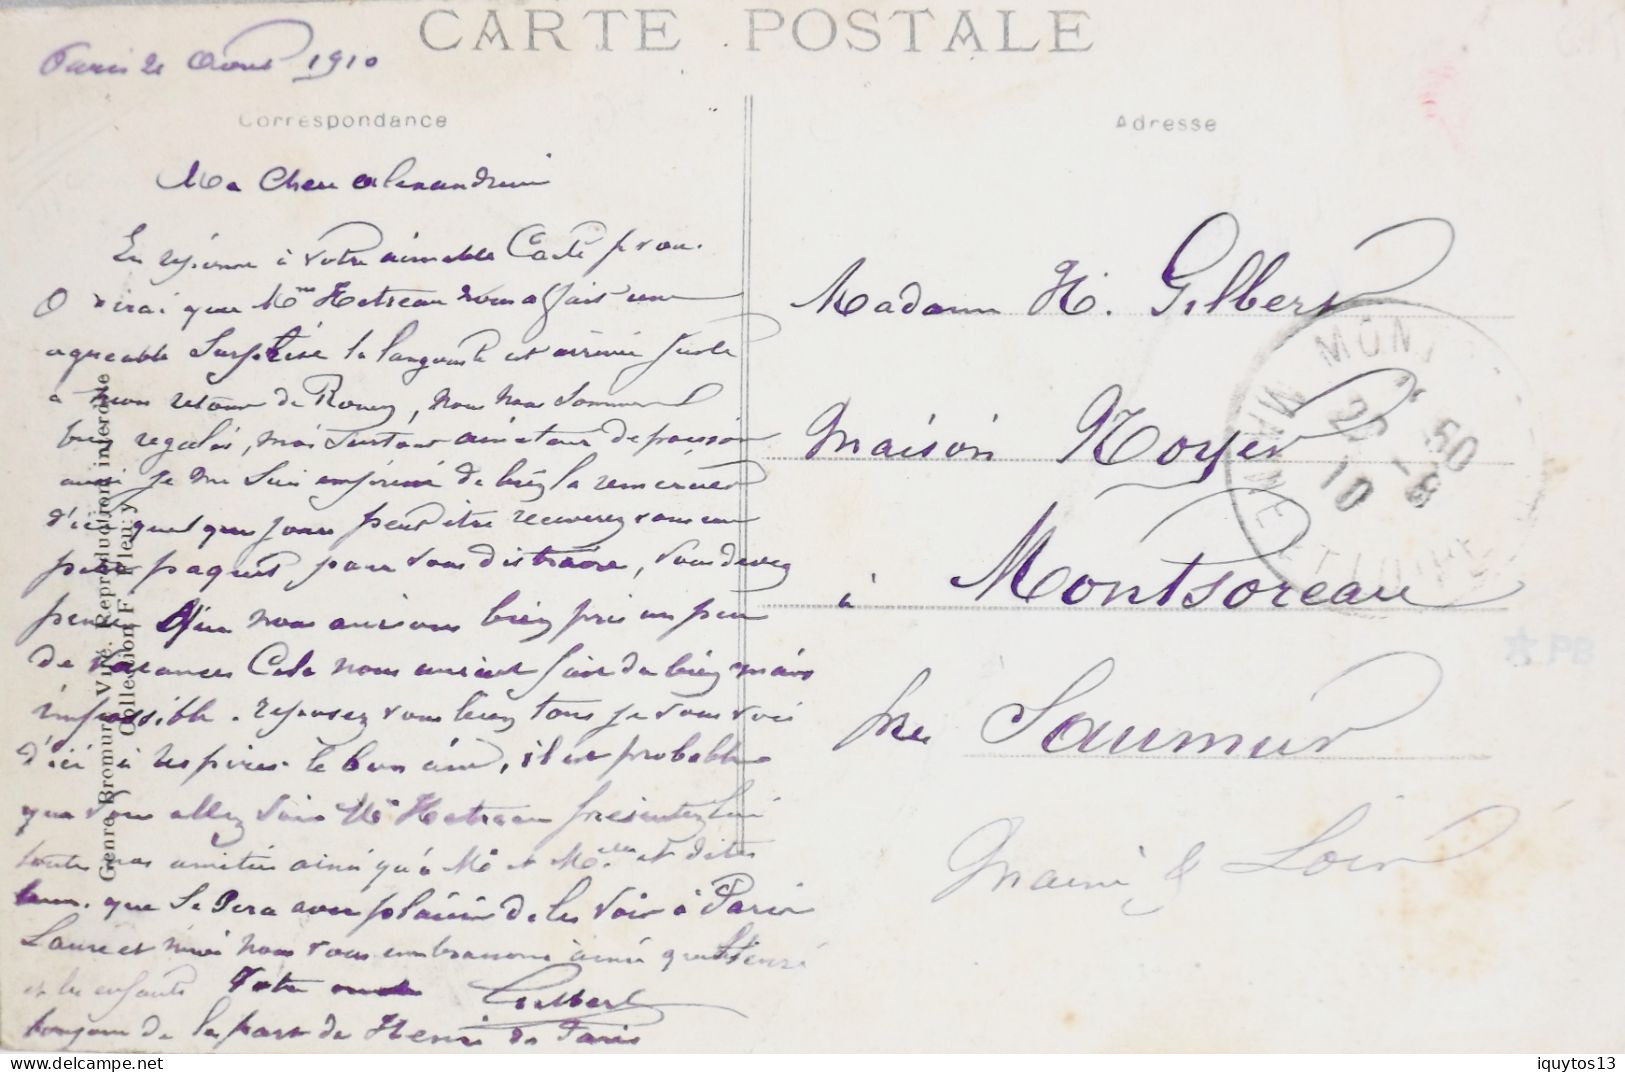 CARTE POSTALE
Paris 21 Aout 1910
Correspondance
Adresse
Ma Chere Alexandrine
En réponse à votre aimable Carte je vous
dirai que Mme Hetreau nous a fait une
agreable Surprise la langouste est arrivée juste
a mon retour de Rouen, nous nous sommes
bien regalés, moi surtout amateur de poisson
aussi je me suis empressé de bien la remercier
d'ici quelques jours peut être recevrez vous un
petit paquet pour vous distraire, vous devez
penser que nous aurions bien pris un peu
de vacances Cela nous aurait fait du bien mais
impossible. reposez vous bien tous je vous vois
d'ici à respirer le bon air, il est probable
que vous allez voir Me Hetreau présentez lui
toutes nos amitiés ainsi qu'à Mr et Melle et dites
leur que Se Sera avec plaisir de les voir à Paris
Laure et moi nous vous embrassons ainsi que Henri
et les enfants Votre Gilbert
bonjour de la part de Henri de Paris
Madame H. Gilbert
Maison Noyer
à Montsoreau
près Saumur
Maine & Loir
MONT
MAINE ET LOIRE
22 -8
10
50
Genre Bromure Vire. Reproduction interdite
Collection F. Fleury
PB
www.delcampe.net
iquytos13